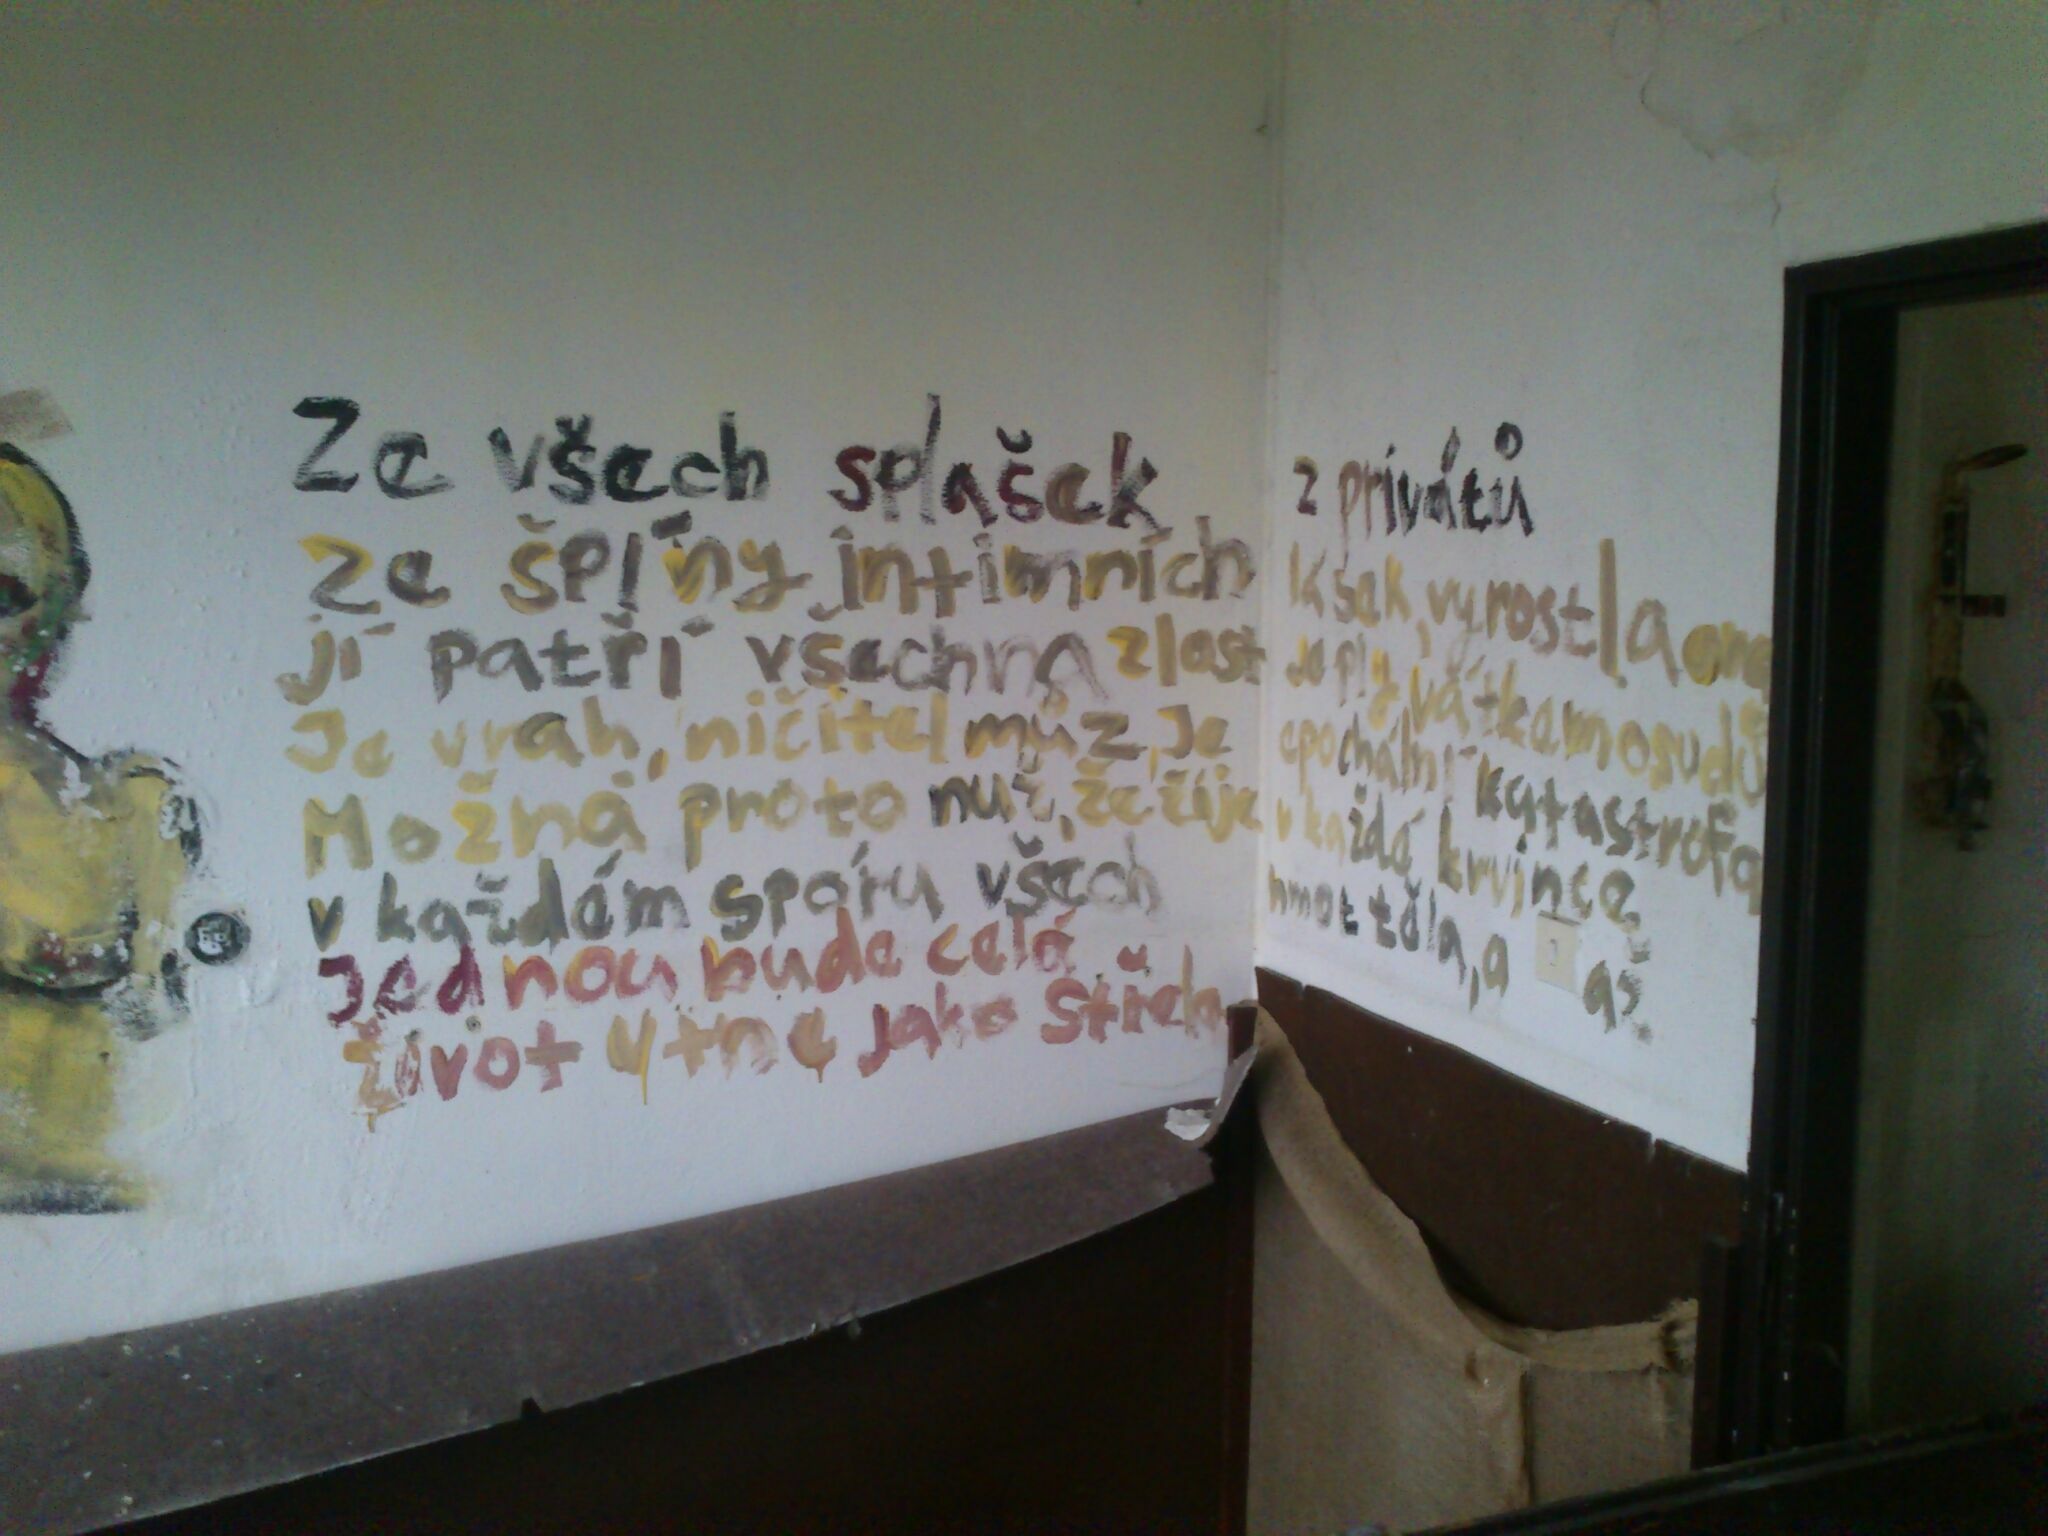 Ze všech splašek z privátů
ze šplíny intimních kšek, vyrostla ona
jí patří všechna zlost je plyvátkem osudů
Je vrah, ničitel múz, je epochální katastrofa
Možná proto nut, že žije v každé krvince
v každém spóru všech hmot těla, a až
Jednou bude celá
život utne jako střela